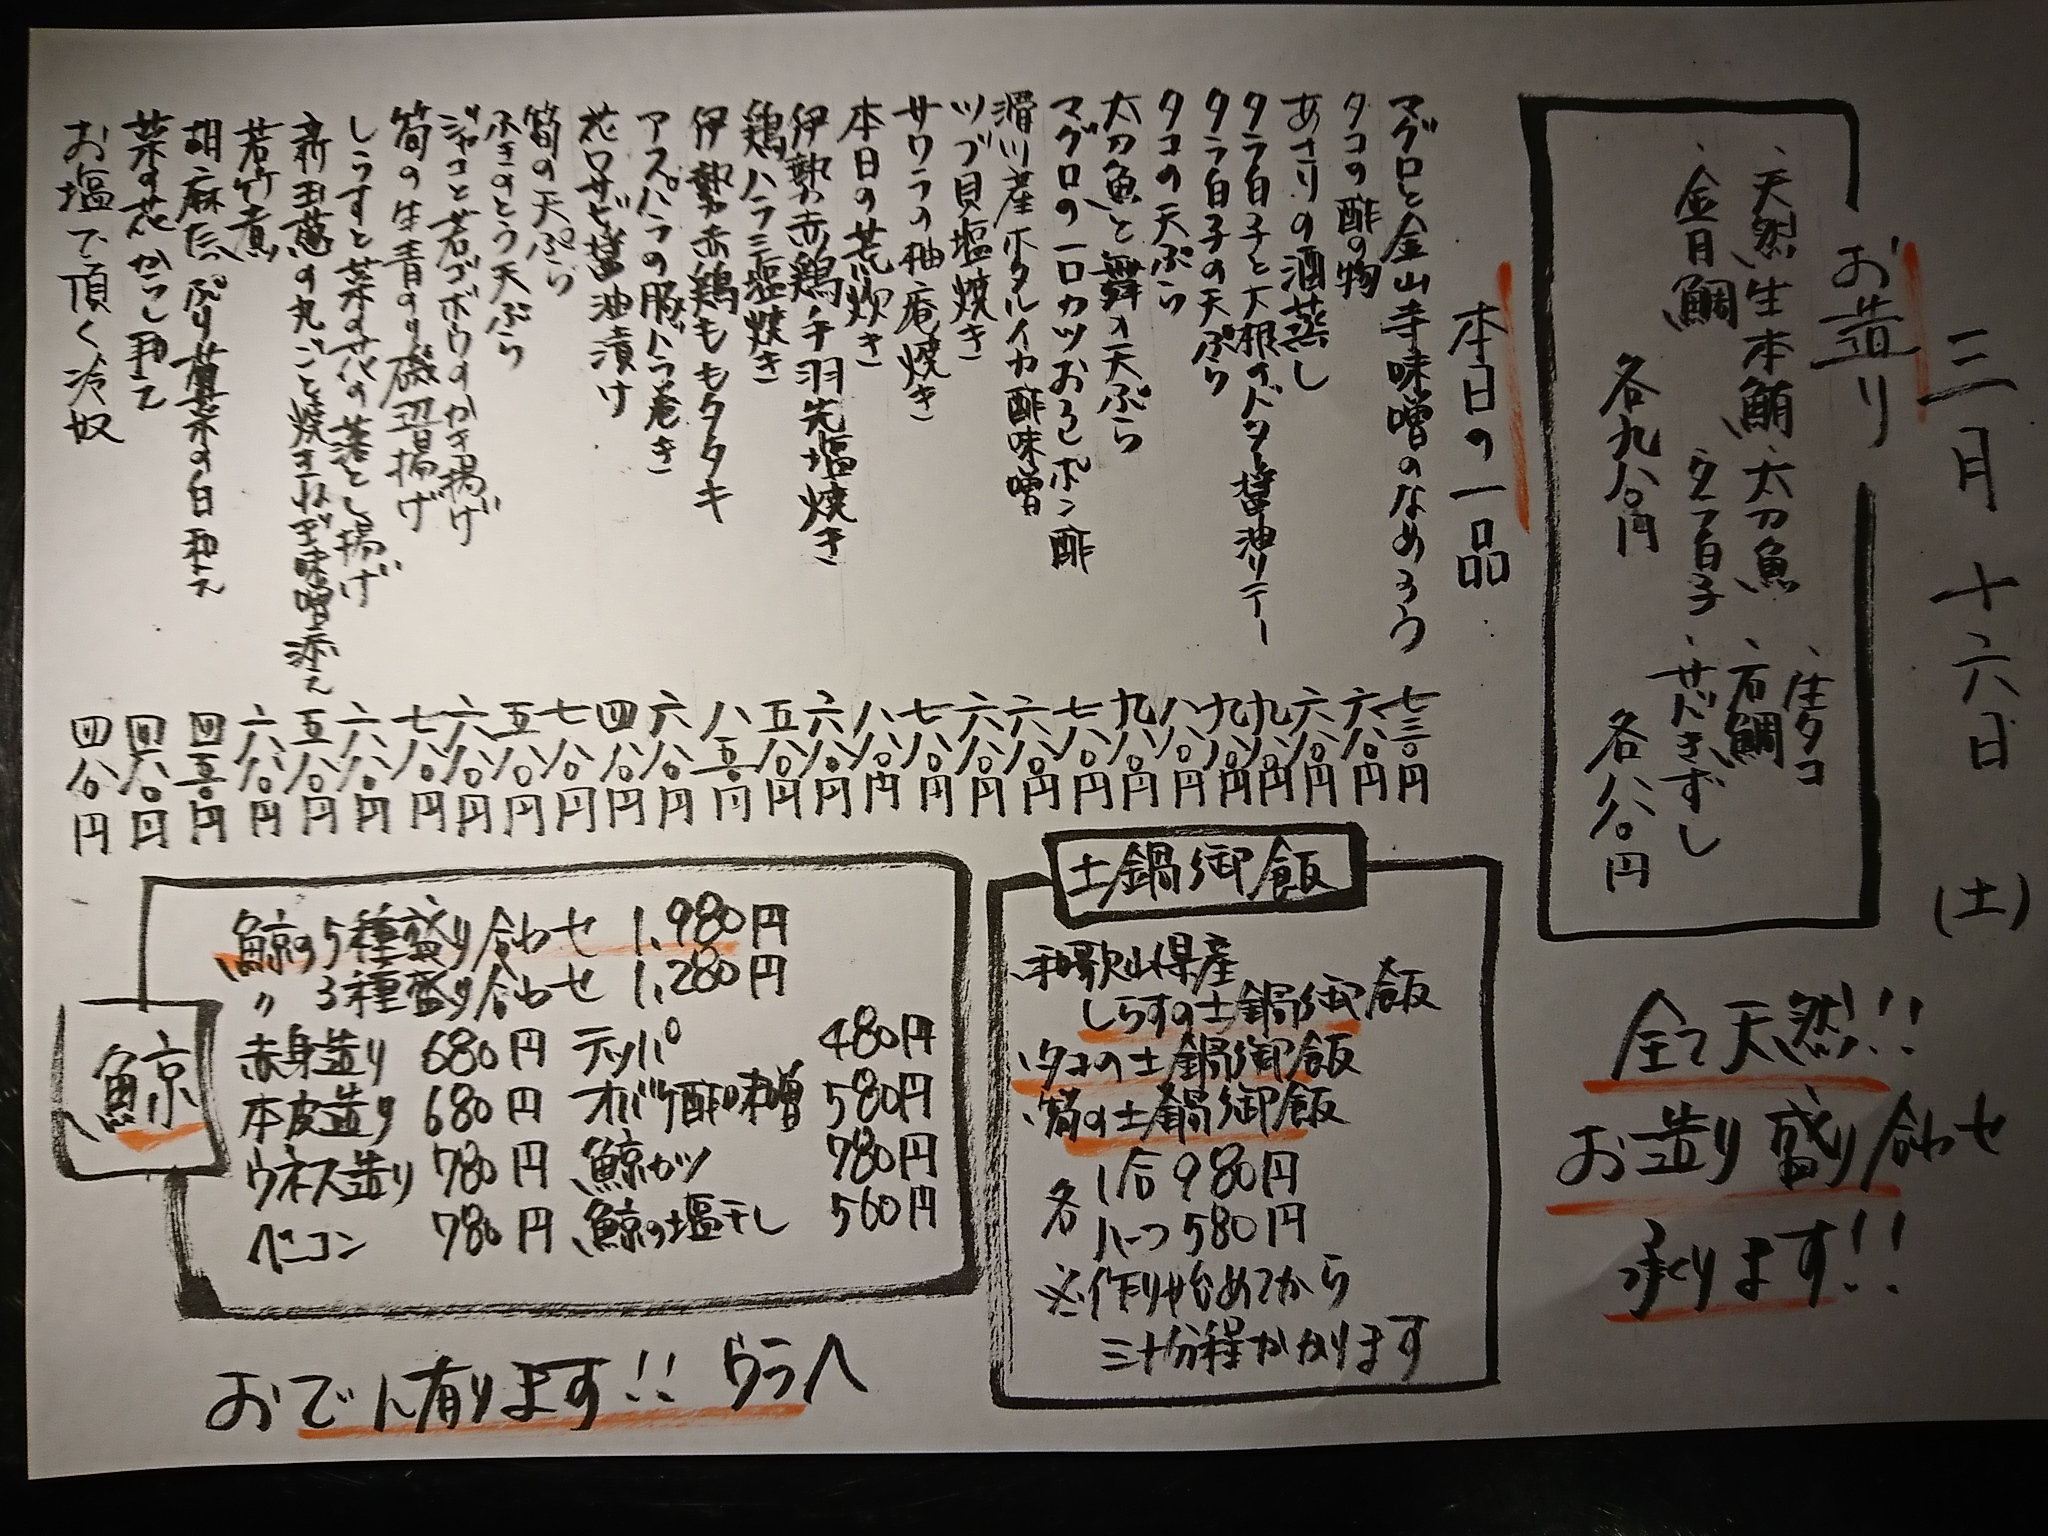 三月十六日(土)
お造り
、天然生本鮪、太刀魚
、金目鯛、タラ白子
各九八〇円
、生タコ
、石鯛
、せんきずし
各八八〇円
全て天然!!
お造り盛り合わせ
承ります!!
本日の一品
マグロと金山寺味噌のなめろう 七三〇円
タコの酢の物 六八〇円
あさりの酒蒸し 六八〇円
タラ白子と大根のバター醤油ソテー 九八〇円
タラ白子の天ぷら 九八〇円
タコの天ぷら 八八〇円
太刀魚と舞の天ぷら 九八〇円
マグロの一口カツおろしポン酢 七八〇円
滑川産ホタルイカ酢味噌 六八〇円
ツブ貝塩焼き 六八〇円
サワラの柚庵焼き 七八〇円
本日の荒炊き 八八〇円
伊勢赤鶏手羽先塩焼き 六八〇円
鶏ハラミ塩焼き 五八〇円
伊勢赤鶏ももタタキ 八五〇円
アスパラの豚バラ巻き 六八〇円
花ワサビ醤油漬け 四八〇円
筍の天ぷら 七八〇円
ふきのとう天ぷら 五八〇円
ジャコと若ゴボウのかき揚げ 六八〇円
筍の生青のり磯辺揚げ 七八〇円
しらすと菜の花の落とし揚げ 六八〇円
新玉葱の丸ごと焼きねぎ味噌添え 五八〇円
若竹煮 六八〇円
胡麻たっぷり菊菜の白和え 四五〇円
菜の花からし和え 四八〇円
お塩で頂く冷奴 四八〇円
土鍋御飯
、和歌山県産
しらすの土鍋御飯
、タコの土鍋御飯
、筍の土鍋御飯
各 1合980円
ハーフ580円
※作り始めてから
三十分程かかります
鯨
鯨の5種盛り合わせ 1,980円
〃 3種盛り合わせ 1,280円
赤身造り 680円 テッパ 480円
本皮造り 680円 オバケ酢味噌 580円
ウネス造り 780円 鯨カツ 780円
ベーコン 780円 鯨の塩干し 560円
おでん有ります!! ウラへ